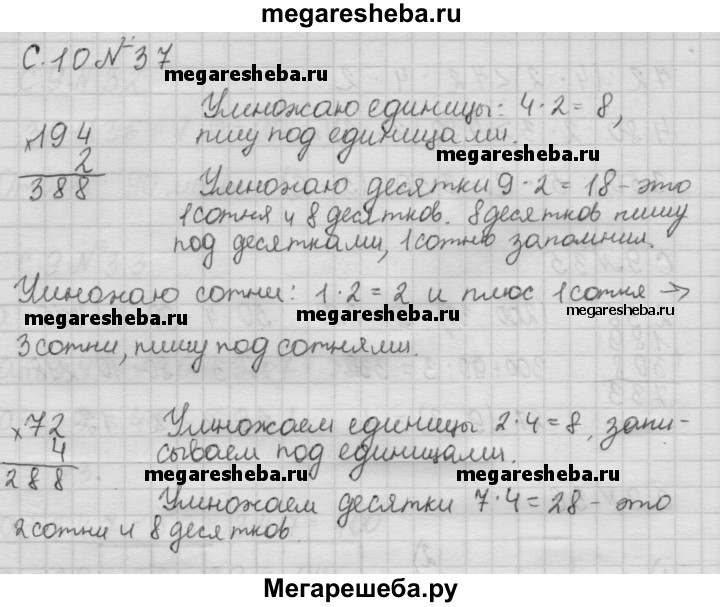 megaresheba.ru
С.10 № 37
megaresheba.ru
Умножаю единицы: 4·2=8,
×194
2
388
пишу под единицами.
megaresheba.ru
Умножаю десятки 9·2=18 - это
1 сотня и 8 десятков. 8 десятков пишу
под десятками, 1 сотню запомнил.
Умножаю сотни: 1·2=2 и плюс 1 сотня →
megaresheba.ru
megaresheba.ru
megaresheba.ru
3 сотни, пишу под сотнями.
×72
4
288
Умножаем единицы 2·4=8, запи-
сываем под единицами.
megaresheba.ru
megaresheba.ru
Умножаем десятки 7·4=28 - это
2 сотни и 8 десятков.
Мегарешеба.ру